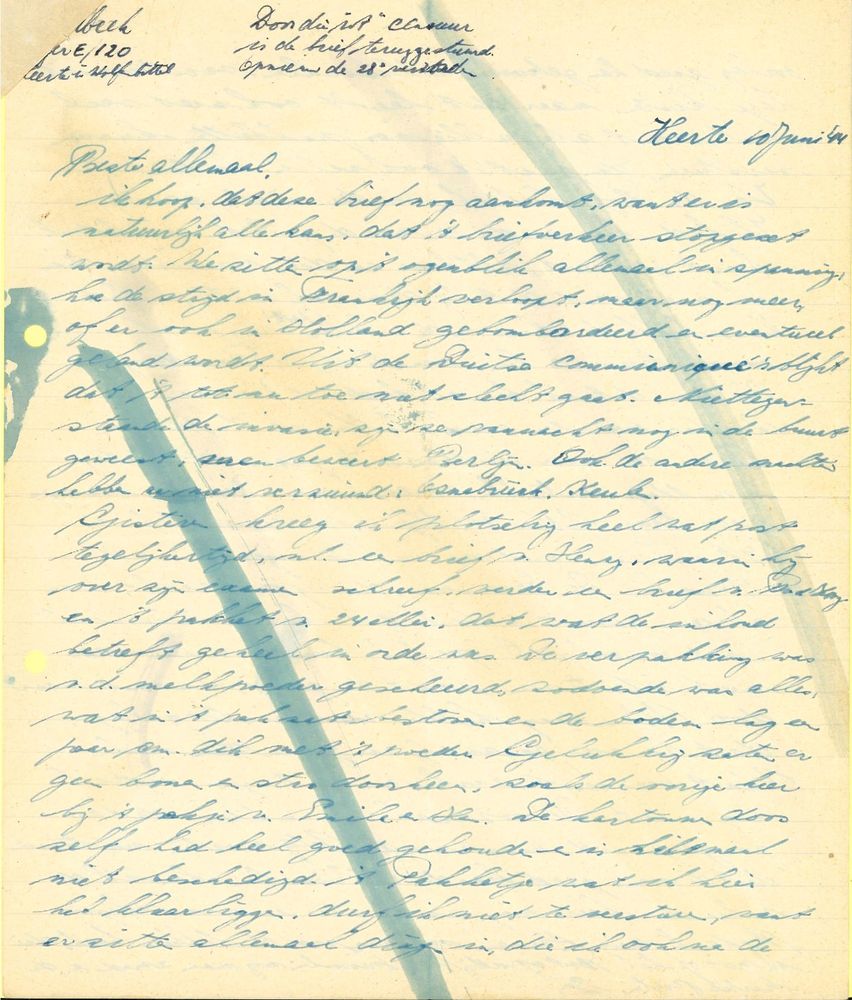 beek
E/120
Heerte ü Wolfenbüttel
Door die "rot" censuur
is de brief teruggestuurd.
Opnieuw de 28e verstuden
Heerte 10 Juni '44
Beste allemaal,
ik hoop, dat deze brief nog aankomt, want er is
natuurlijk alle kans, dat 't briefverkeer stopgezet
wordt. We zitten op 't ogenblik allemaal in spanning,
hoe de strijd in Frankrijk verloopt, maar nog meer,
of er ook in Holland gebombardeerd en eventueel
geland wordt. Uit de Duitse communiqué's blijkt
dat 't tot nu toe niet slecht gaat. Niettegen-
staande de invasie, zijn ze vannacht nog in de buurt
geweest, beweert Berlijn. Ook de andere nachten
hebben ze niet verzuimd: Osnabrück, Keulen.
Gisteren kreeg ik plotseling heel wat post
tegelijkertijd, nl. een brief v. Henny, waarin hij
over zijn examen schreef, verder een brief v.
en 't pakket v. 24 Mei, dat wat de inhoud
betreft geheel in orde was. De verpakking was
v.d. melkpoeder gescheurd, zodoende was alles,
wat in 't pakket bestoven en de bodem lag een
paar cm. dik met 't poeder. Gelukkig zaten er
geen bonen en stro doorheen, zoals de vorige keer
bij 't pakje v. Emile en. De kartonnen doos
zelf had heel goed gehouden en is helemaal
niet beschadigd. 't Pakketje wat ik hier
heb klaarliggen, durf ik niet te versturen, want
er zitten allemaal dingen in, die ik ook na de